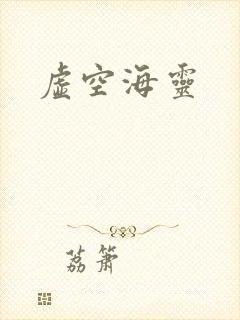 虛空海靈
荔簫